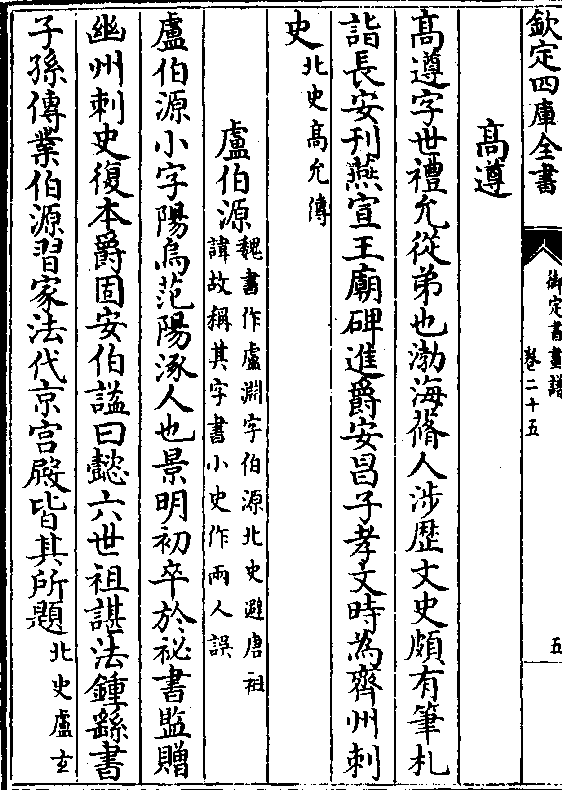 欽定四庫全書
御定書畫譜
卷二十五
五
高遵
高遵字世禮允從弟也渤海蓨人涉歴文史頗有筆札
詣長安刋燕宣王廟碑進爵安昌子孝文時為齊州刺
史北史高允傳
盧伯源魏書作盧淵字伯源北史避唐祖
諱故稱其字書小史作兩人誤
盧伯源小字陽烏范陽涿人也景明初卒於祕書監贈
幽州刺史復本爵固安伯諡曰懿六世祖諶法鍾繇書
子孫傳業伯源習家法代京宫殿皆其所題北史盧玄